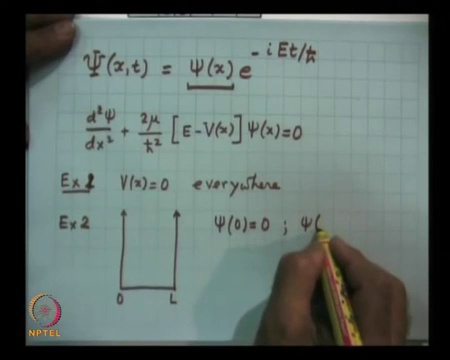 Ψ(x,t) = ψ(x) e^{-iEt/ħ}
d²ψ/dx² + 2μ/ħ² [E-V(x)] ψ(x)=0
Ex 1 V(x)=0 everywhere
Ex 2 ψ(0)=0 ; ψ(
0 L
NPTEL